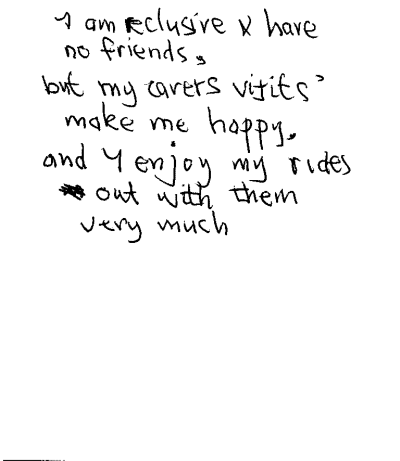 I am reclusive & have
no friends,
but my carers visits'
make me happy.
and I enjoy my rides
out with them
very much